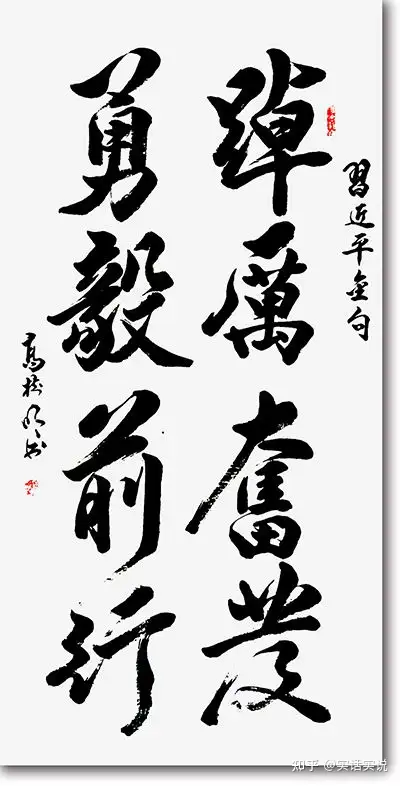 習近平金句
踔厲奮發
勇毅前行
知乎 @实话实说